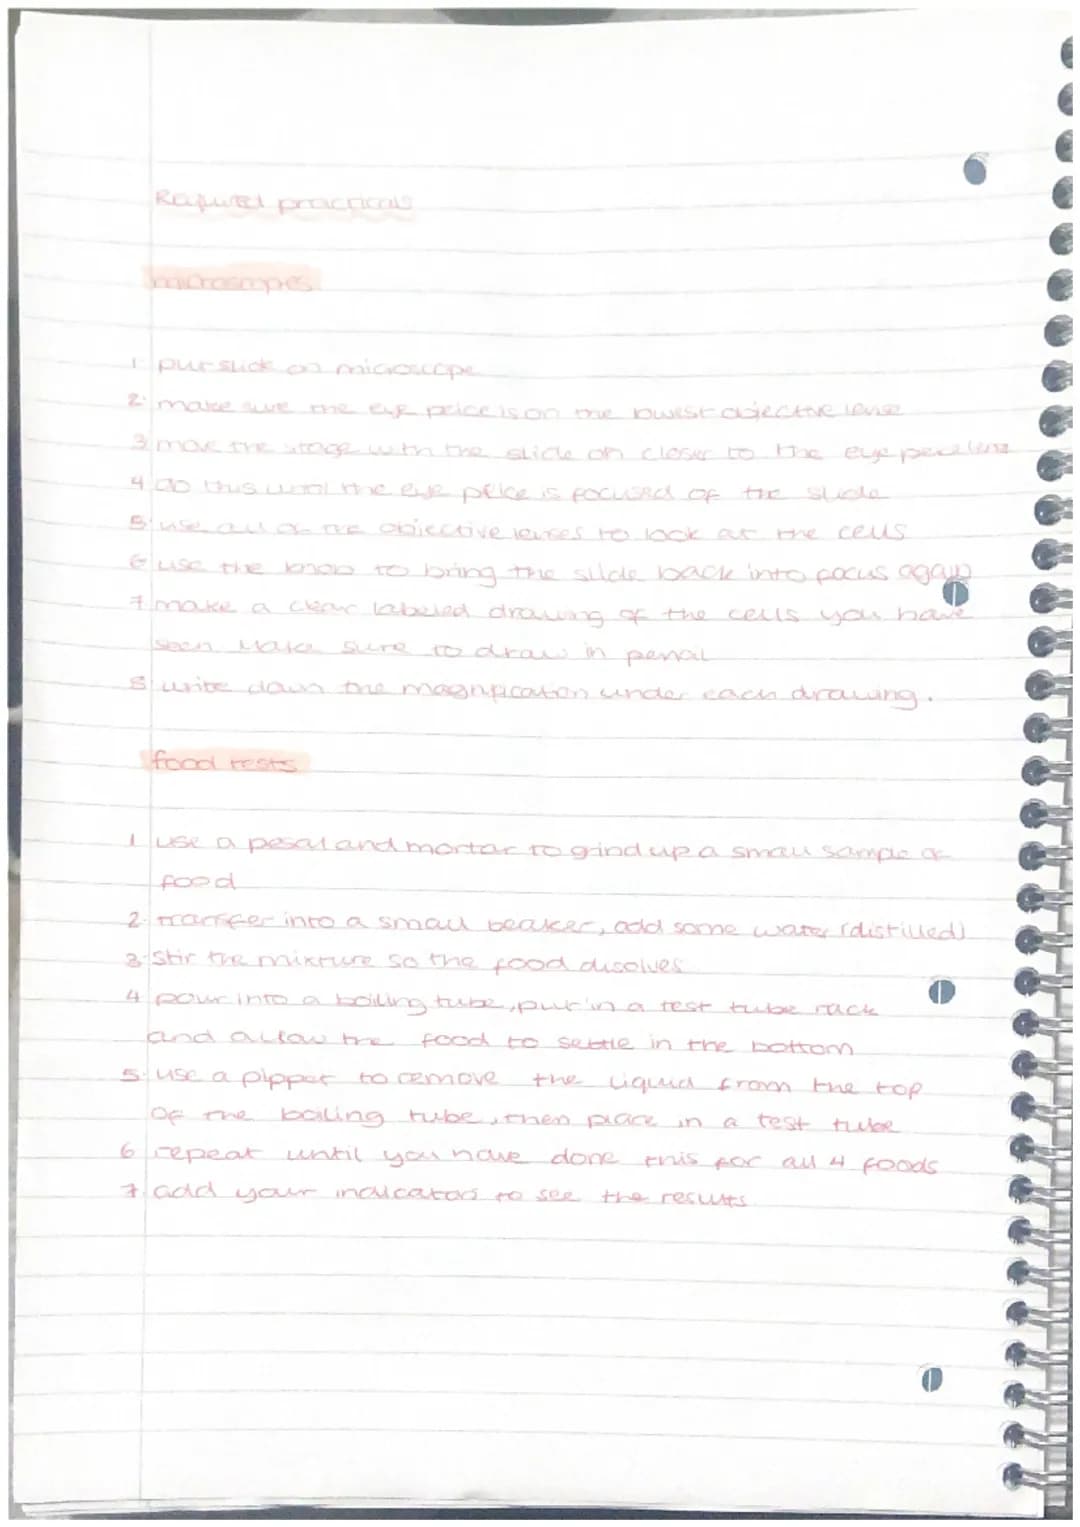 Required practicals
microscopes
1 put slide on microscope
2. make sure the eye peice is on the lowest objective lense
3 move the stage with the slide on closer to the eye peice lens
4 do this until the eye peice is focused of the slide
5 use all of the objective lenses to look at the cells
6 use the knob to bring the slide back into focus again
7 make a clear labeled drawing of the cells you have
seen Make sure to draw in pencil
8 write down the magnification under each drawing.
food tests
1 use a pesal and mortar to grind up a small sample of
food
2. transfer into a small beaker, add some water (distilled)
3. Stir the mixture so the food disolves
4 pour into a boiling tube, put in a test tube rack
and allow the food to settle in the bottom
5. use a pippet to remove the liquid from the top
of the boiling tube, then place in a test tube
6 repeat until you have done this for all 4 foods
7. add your indicators to see the results